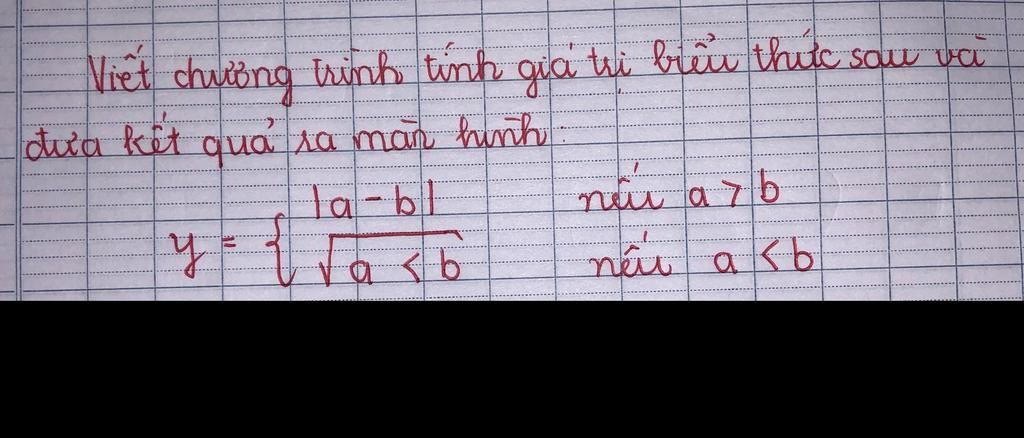 Viết chương trình tính giá trị biểu thức sau và
đưa kết quả ra màn hình:
|a - b| nếu a > b
y = {
√a < b nếu a < b